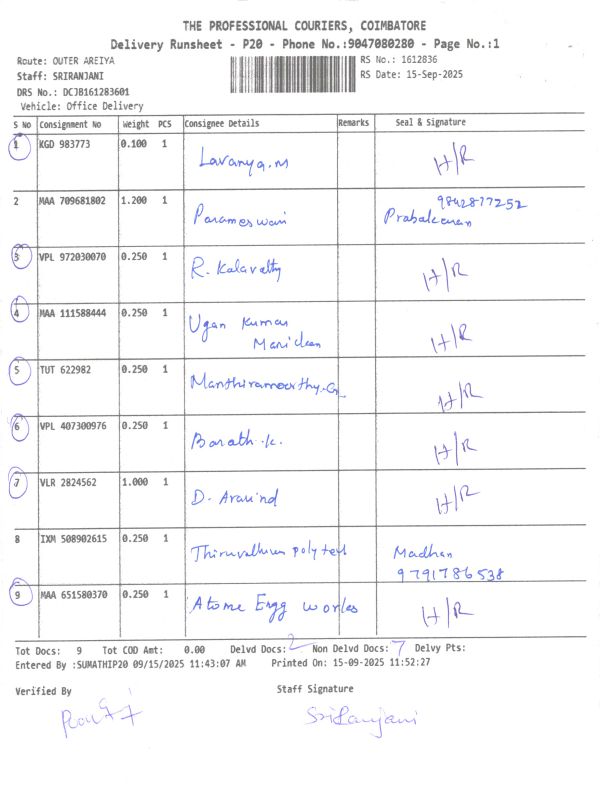 THE PROFESSIONAL COURIERS, COIMBATORE
Delivery Runsheet - P20 - Phone No.:9047080280 - Page No.:1
Route: OUTER AREIYA RS No.: 1612836
Staff: SRIRANJANI RS Date: 15-Sep-2025
DRS No.: DCJB161283601
Vehicle: Office Delivery
S No Consignment No Weight PCS Consignee Details Remarks Seal & Signature
1 KGD 983773 0.100 1 Lavanya.M H/R
2 MAA 709681802 1.200 1 Parameswari 9842877252
Prabakaran
3 VPL 972030070 0.250 1 R. Kalavathy H/R
4 MAA 111588444 0.250 1 Ugan Kumar H/R
5 TUT 622982 0.250 1 Manthiramoorthy.G H/R
6 VPL 407300976 0.250 1 Barath.K. H/R
7 VLR 2824562 1.000 1 D. Aravind H/R
8 IXM 508902615 0.250 1 Thiruvalluva polytech Madhan
9791786538
9 MAA 651580370 0.250 1 Atome Engg works H/R
Tot Docs: 9 Tot COD Amt: 0.00 Delvd Docs: 2 Non Delvd Docs: 7 Delvy Pts:
Entered By :SUMATHIP20 09/15/2025 11:43:07 AM Printed On: 15-09-2025 11:52:27
Verified By Staff Signature
SriRanjani